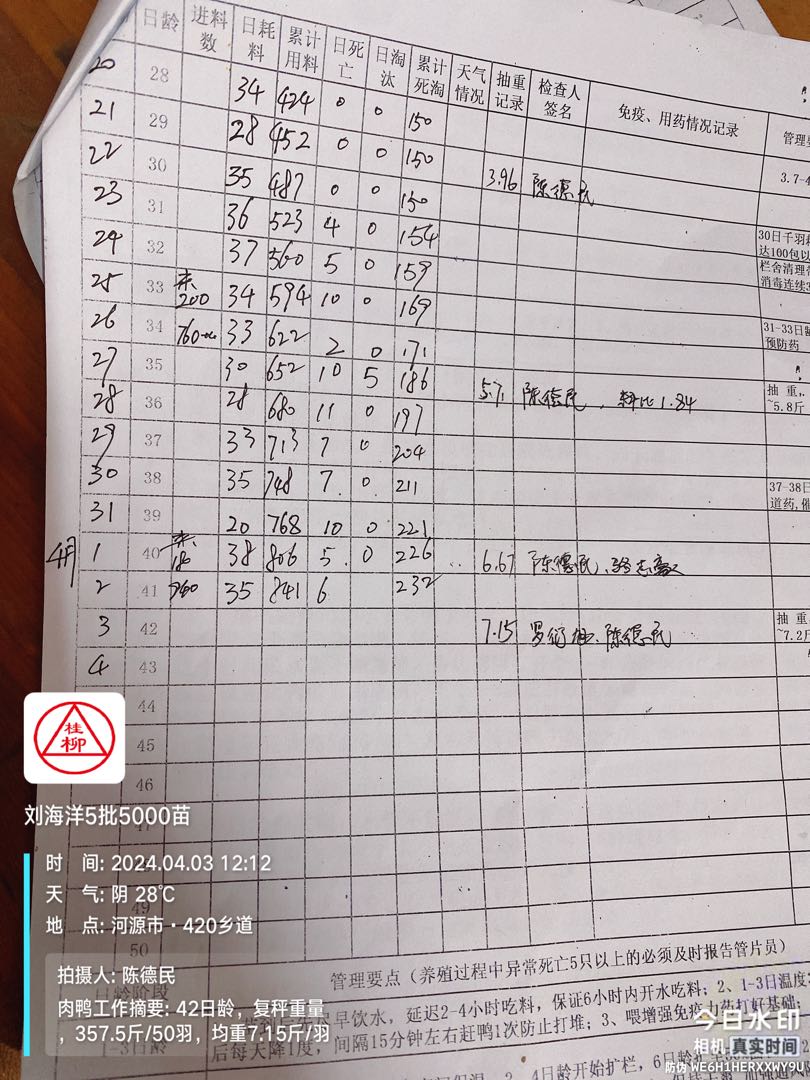 日龄 进料数 日耗料 累计用料 日死亡 日淘汰 累计死淘 天气情况 抽重记录 检查人签名 免疫、用药情况记录 管理要
20 28 34 424 0 0 150
21 29 28 452 0 0 150
22 30 35 487 0 0 150 3.96 陈德民 3.7-4
23 31 36 523 4 0 154
24 32 37 560 5 0 159
30日千羽
达100包以
栏舍清理
消毒连续3
25 33 来200 34 594 10 0 169
26 34 760 33 622 2 0 171
31-33日龄
预防药
27 35 30 652 10 5 186
28 36 28 680 11 0 197 5.71 陈德民、料比1.84
抽重
~5.8斤
29 37 33 713 7 0 204
30 38 35 748 7 0 211
37-38日
道药,催
31 39 20 768 10 0 221
4月 1 40 来18 38 806 5 0 226 6.67 陈德民
2 41 760 35 841 6 232
3 42 7.15 陈德民
抽重
~7.2斤
4 43
44
45
46
47
49
50
桂柳
刘海洋5批5000苗
时 间: 2024.04.03 12:12
天 气: 阴 28℃
地 点: 河源市·420乡道
拍摄人: 陈德民
肉鸭工作摘要: 42日龄，复秤重量
，357.5斤/50羽，均重7.15斤/羽
管理要点（养殖过程中异常死亡5只以上的必须及时报告管片员）
日龄阶段
1-3日龄
早饮水，延迟2-4小时吃料，保证6小时内开水吃料；2、1-3日温度
后每天降1度，间隔15分钟左右赶鸭1次防止打堆；3、喂增强免疫力药打好基础;
4日龄开始扩栏，6日龄
今日水印
相机 真实时间
防伪 WE6H1HERXXWY9U